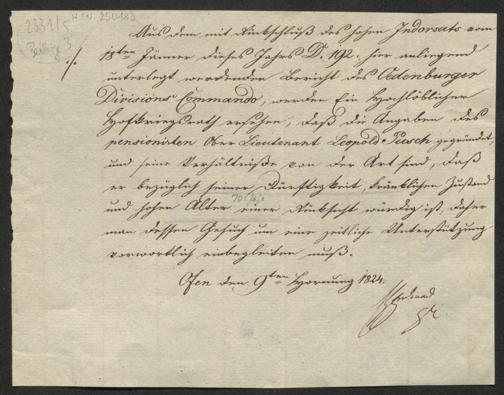 2331/5
H.I.N. 250183
Beilag 3
Aus dem mit Rückschluß des hohen Indorsats vom
./. 18ten Jänner dieses Jahrs D. 192. hier anliegend
unterlegt werdenden Bericht des Ödenburger
Divisions Commando, werden Ein Hochlöblicher
Hofkriegsrath ersehen, daß die Angaben des
pensionirten Ober Lieutenant Leopold Piesch gegründet,
und seine Verhältniße von der Art sind, daß
er bezüglich seiner Dürftigkeit, kränklichen Zustand
und hohen Alter einer Rücksicht würdig ist, daher
man dessen Gesuch um eine zeitliche Unterstützung
vorwortlich einbegleiten muß.
Ofen den 9ten Hornung 1824.
Ferdinand